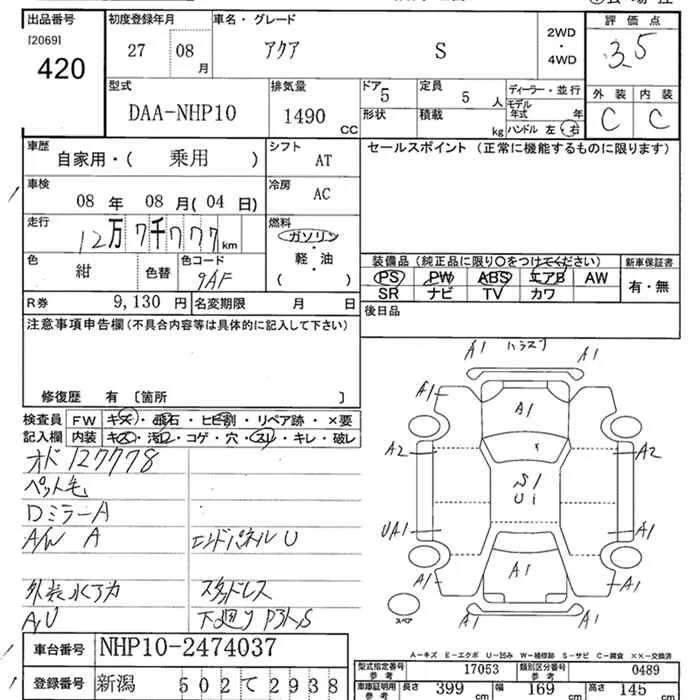 出品番号 初度登録年月 車名・グレード 評価点
[2069] 27 08月 アクア S 2WD・4WD 3.5
420
型式 排気量 ドア 5 定員 5人 ディーラー・並行 外装 内装
DAA-NHP10 1490CC 形状 積載 kg モデル年式 年 C C
ハンドル 左・右
車歴 自家用・( 乗用 ) シフト AT セールスポイント (正常に機能するものに限ります)
車検 08年 08月(04日) 冷房 AC
走行 12万7千777km 燃料 ガソリン・軽・油 ( )
色 紺 色替 色コード 9AF
装備品(純正品に限り○をつけてください) 新車保証書
PS PW ABS エアB AW 有・無
SR ナビ TV カワ
R券 9,130円 名変期限 月 日 後日品
注意事項申告欄(不具合内容等は具体的に記入して下さい)
修復歴 有 〔箇所 〕
検査員 FW キズ・飛石・ヒビ割・リペア跡・×要
記入欄 内装 キズ・汚れ・コゲ・穴・スレ・キレ・破レ
オド 127778
ペット毛
DミラーA
A/W A エンドパネルU
外装水アカ スタッドレス
A,U 下廻り
A1 A1
A1 A1 A1
A2 A2
S1
U1
UA1 A1
A1 A1 A1
A1 A1
スペア
A-キズ E-エクボ U-凹み W-補修跡 S-サビ C-腐食 ××-交換済
車台番号 NHP10-2474037
登録番号 新潟 502 て 2938
型式指定番号 参考 17053 類別区分番号 参考 0489
車庫証明用 参考 長さ 399cm 幅 169cm 高さ 145cm